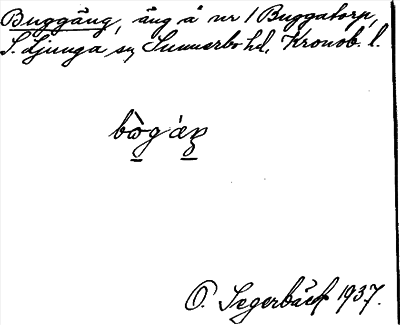 Buggäng, äng å nr 1 Buggatorp,
S. Ljunga sn, Sunnerbo hd, Kronob. l.
O. Segerbäck 1937.